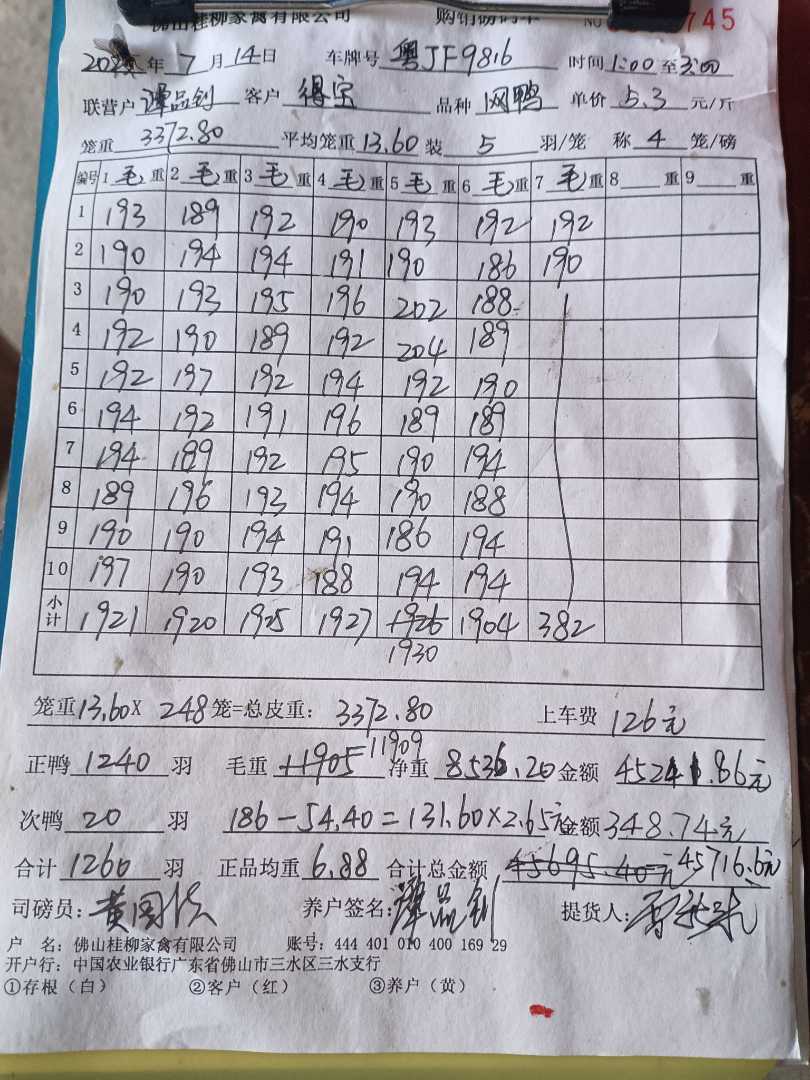 佛山桂柳家禽有限公司 购销磅码单 NO 745
年 7 月 14 日 车牌号 粤JF9816 时间 1:00 至 3:00
联营户 谭品钊 客户 得宝 品种 网鸭 单价 5.3 元/斤
笼重 3372.80 平均笼重 13.60 装 5 羽/笼 称 4 笼/磅
编号 1 毛 重 2 毛 重 3 毛 重 4 毛 重 5 毛 重 6 毛 重 7 毛 重 8 重 9 重
1 193 189 192 190 193 192 192
2 190 194 194 191 190 186 190
3 190 193 195 196 202 188
4 192 190 189 192 204 189
5 192 197 192 194 192 190
6 194 192 191 196 189 189
7 194 189 192 195 190 194
8 189 196 193 194 190 188
9 190 190 194 191 186 194
10 197 190 193 188 194 194
小计 1921 1920 1925 1927 1926 1904 382
1930
笼重 13.60 X 248 笼=总皮重: 3372.80 上车费 126元
正鸭 1240 羽 毛重 11905 11909 净重 8536.20 金额 45241.86元
次鸭 20 羽 186-54.40=131.60×2.65元 金额 348.74元
合计 1260 羽 正品均重 6.88 合计总金额 45695.40元 45716.6元
司磅员: 养户签名: 谭品钊 提货人:
户 名: 佛山桂柳家禽有限公司 账号: 444 401 010 400 169 29
开户行: 中国农业银行广东省佛山市三水区三水支行
①存根(白) ②客户(红) ③养户(黄)